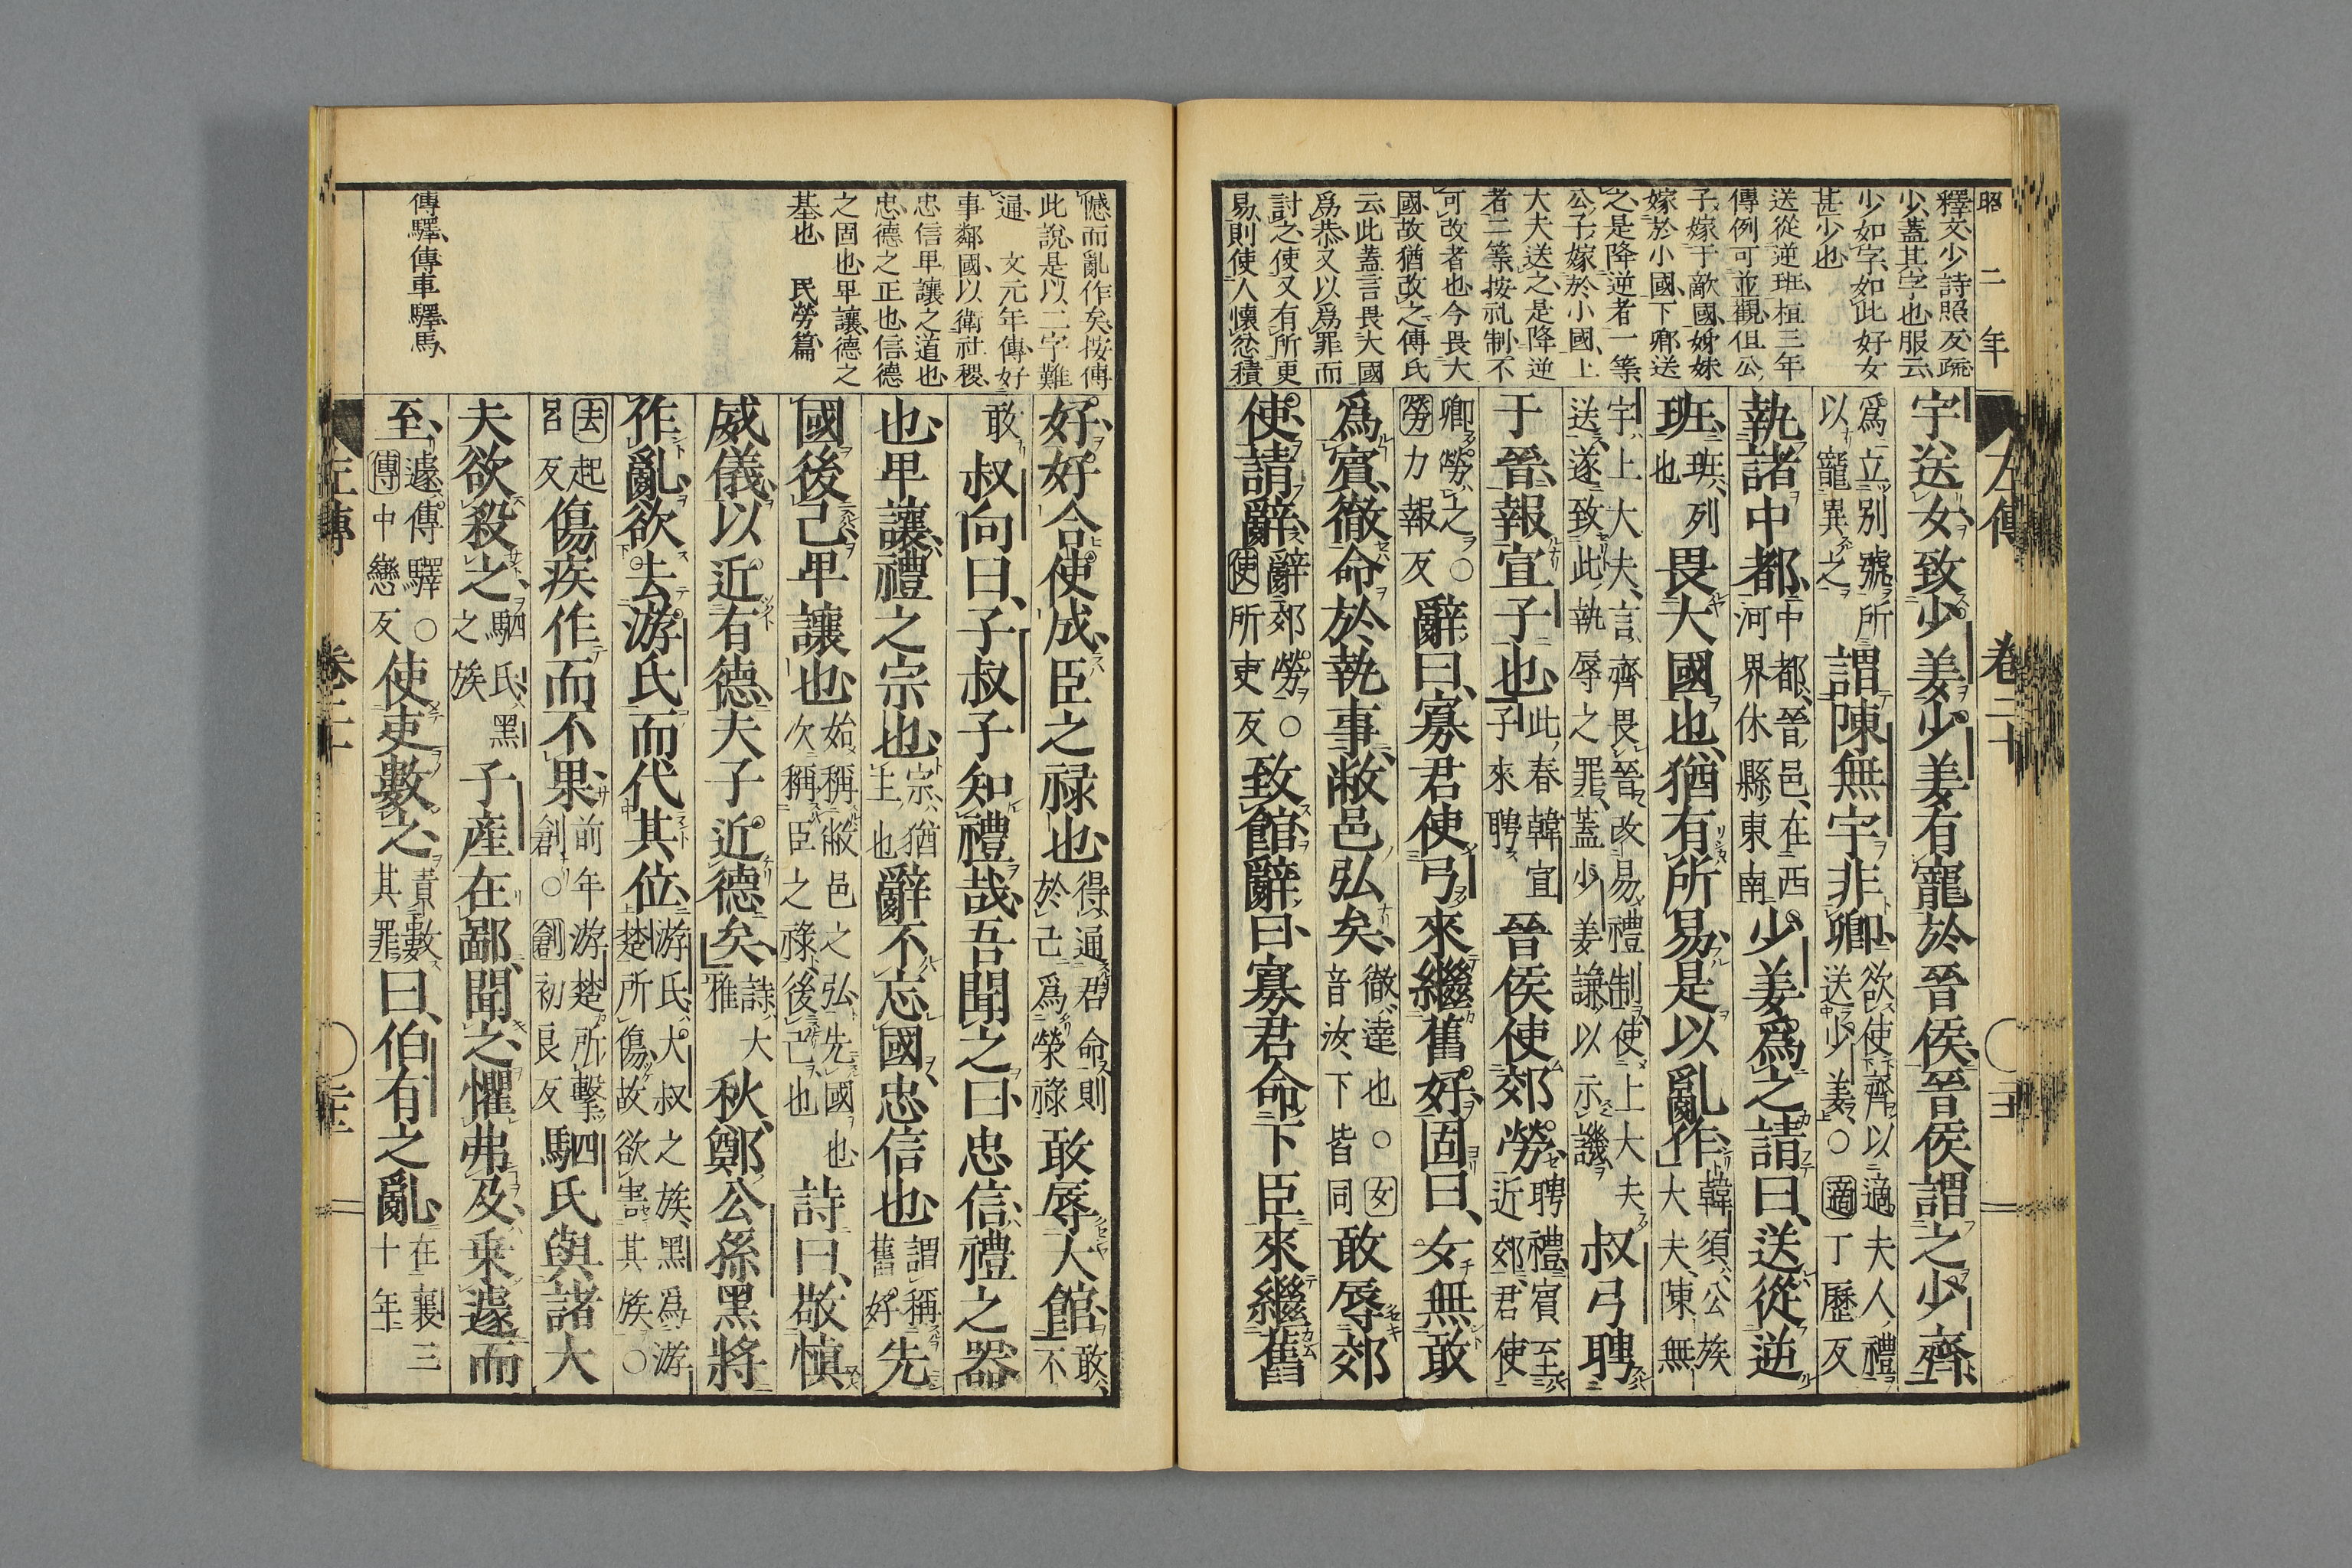 昭二年
釋文少詩照反疏
少蓋其字也服云
少如字如此好女
甚少也
送從逆班桓三年
傳例可並觀但公
子嫁于敵國姊妹
嫁於小國下卿送
之是降逆者一等
公子嫁於小國上
大夫送之是降逆
者二等按礼制不
可改者也今畏大
國故猶改之傳氏
云此蓋言畏大國
爲恭又以爲罪而
討之使又有所更
易則使人懷忿積
左傳 卷二十
宇送女致少姜少姜有寵於晉侯晉侯謂之少齊
爲立別號所以寵異之謂陳無宇非卿欲使齊以適夫人禮送少姜○適丁歷反
執諸中都中都晉邑在西河界休縣東南少姜爲之請曰送從逆
班班列也畏大國也猶有所易是以亂作韓須公族大夫陳無
宇上大夫言齊畏晉改易禮制使上大夫送遂致此執辱之罪蓋少姜謙以示譏叔弓聘
于晉報宣子也此春韓宣子來聘晉侯使郊勞聘禮賓至近郊君使
卿勞之○勞力報反辭曰寡君使弓來繼舊好固曰女無敢
爲賓徹命於執事敝邑弘矣徹達也○女音汝下皆同敢辱郊
使請辭辭郊勞○使所吏反致館辭曰寡君命下臣來繼舊
憾而亂作矣按傳
此說是以二字難
通 文元年傳好
事鄰國以衛社稷
忠信卑讓之道也
忠德之正也信德
之固也卑讓德之
基也 民勞篇
傳驛傳車驛馬
好好合使成臣之禄也得通君命則於己爲榮祿敢辱大館敢不
敢叔向曰子叔子知禮哉吾聞之曰忠信禮之器
也卑讓禮之宗也宗猶主也辭不忘國忠信也謂稱舊好先
國後己卑讓也始稱敝邑之弘先國也次稱臣之祿後己也詩曰敬慎
威儀以近有德夫子近德矣詩大雅秋鄭公孫黑將
作亂欲去游氏而代其位游氏大叔之族黑爲游楚所傷故欲害其族○
去起呂反傷疾作而不果前年游楚所擊創○創初良反駟氏與諸大
夫欲殺之駟氏黑之族子產在鄙聞之懼弗及乘遽而
至遽傳驛○傳中戀反使吏數之責數其罪曰伯有之亂在襄三十年
左傳 卷二十